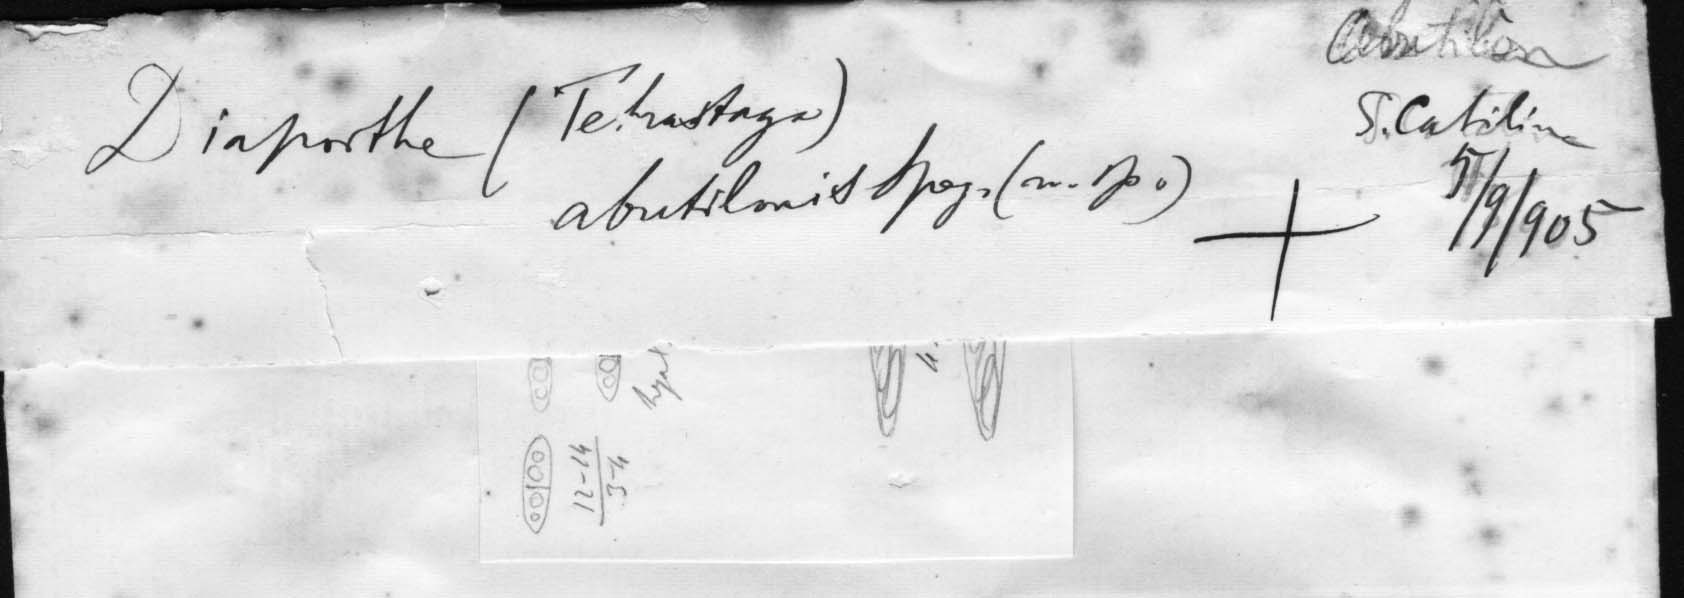 Diaporthe (Tetrastaga)
abutilonis Speg. (n. sp.)
Abutilon
S. Catilina
5/9/905
hyal.
12-14
3-4
4.